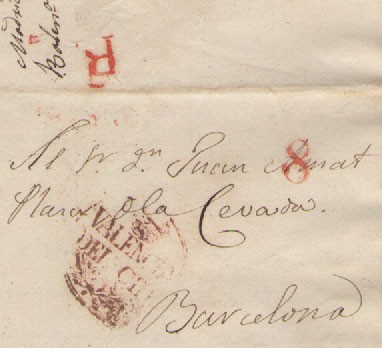 Madrid
R
8
Al Sr. Dn. Juan Amat
Plaza de la Cevada.
VALEN
DEL CI
Barcelona